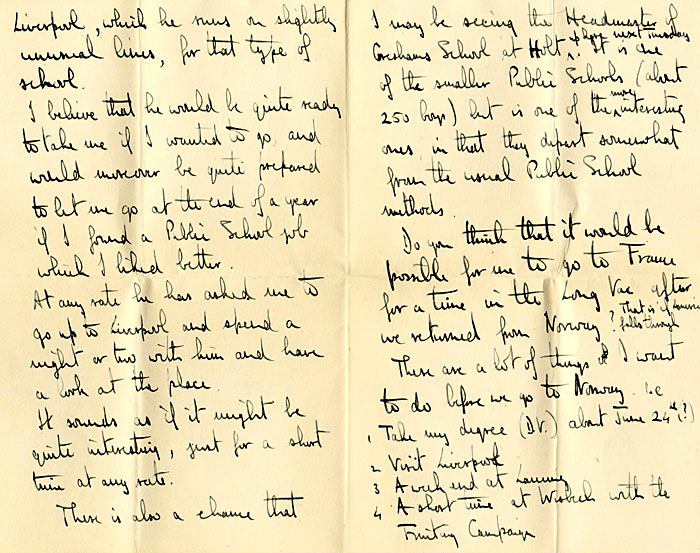 Liverpool, which he runs on slightly
unusual lines, for that type of
school.
I believe that he would be quite ready
to take me if I wanted to go, and
would moreover be quite prepared
to let me go at the end of a year
if I found a Public School job
which I liked better.
At any rate he has asked me to
go up to Liverpool and spend a
night or two with him and have
a look at the place.
It sounds as if it might be
quite interesting, just for a short
time at any rate.
There is also a chance that
I may be seeing the Headmaster of
Greshams School at Holt, up here next Tuesday. It is one
of the smaller Public Schools (about
250 boys) but is one of the more interesting
ones, in that they depart somewhat
from the usual Public School
methods.
Do you think that it would be
possible for me to go to France
for a time in the Long Vac after
we returned from Norway? That is if America
falls through
There are a lot of things I want
to do before we go to Norway. i.e
1, Take my degree (D.V.) about June 24th (?)
2 Visit Liverpool
3 A week end at Lancing
4 A short time at Wisbech with the
Fruiting Campaign